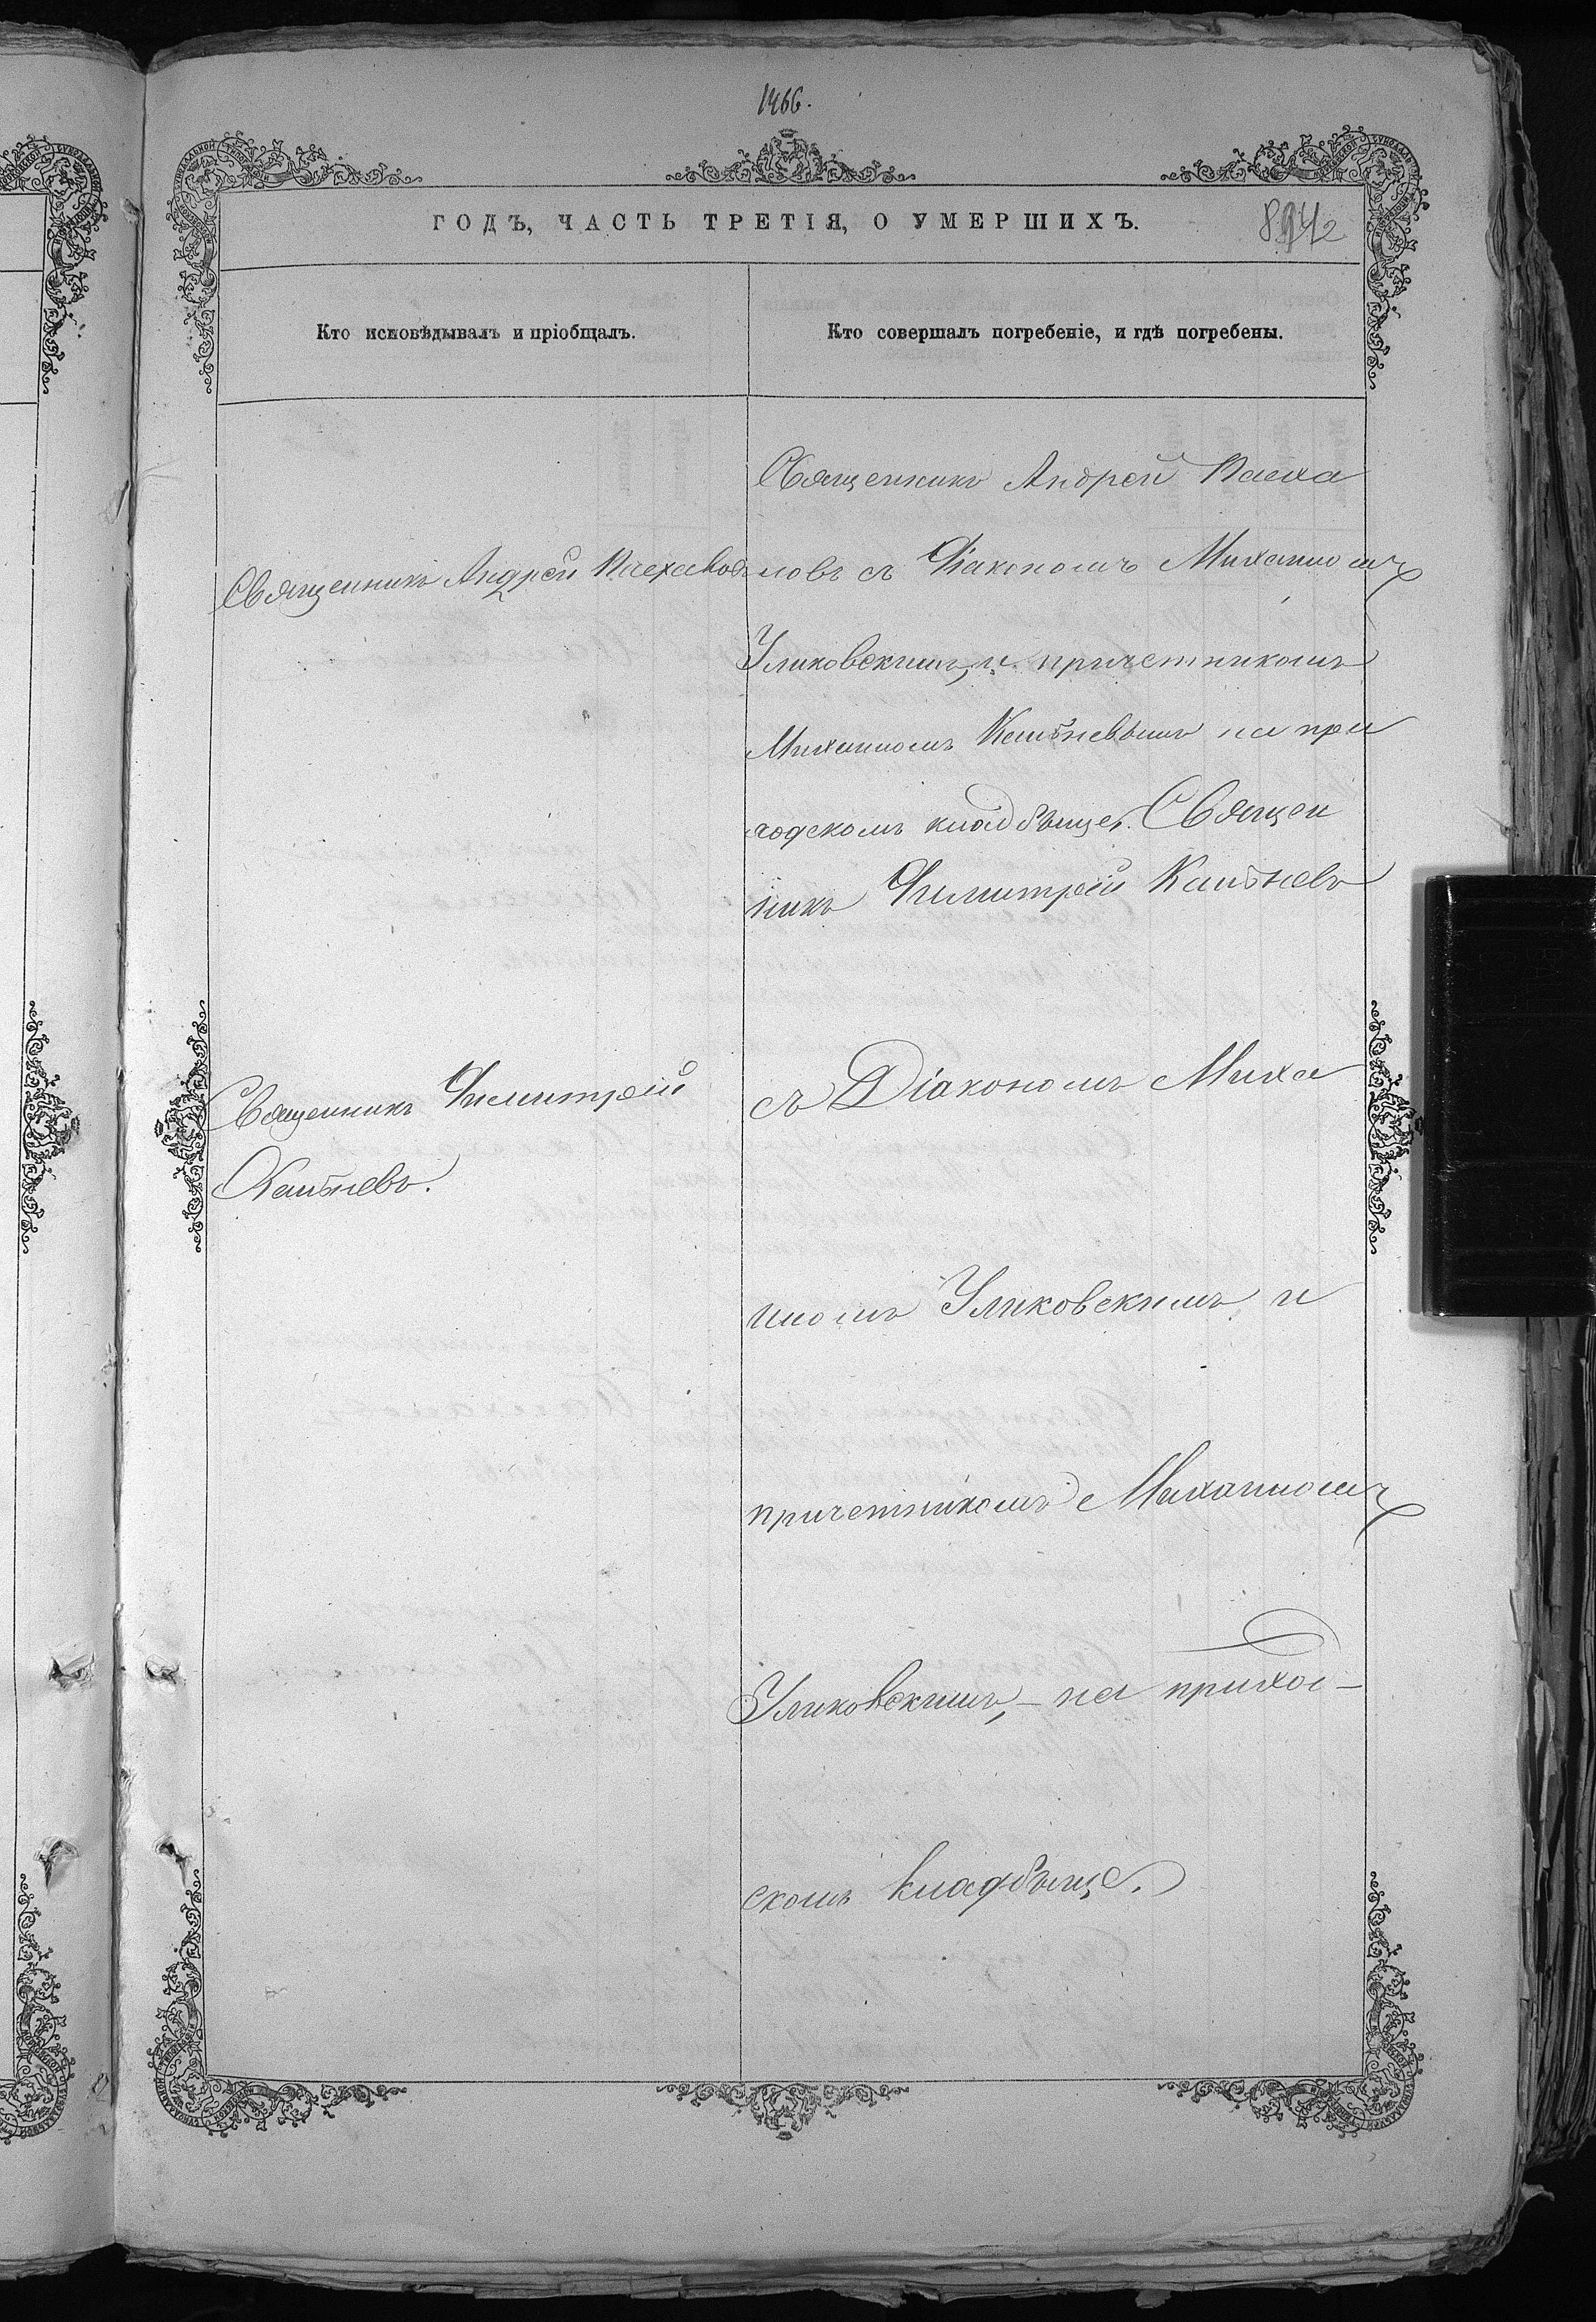 1466.
ГОДЪ, ЧАСТЬ ТРЕТІЯ, О УМЕРШИХЪ.
Кто исповѣдывалъ и пріобщалъ.
Кто совершалъ погребеніе, и гдѣ погребены.
Священникъ Андрей
Священникъ Димитрій
Священникъ Андрей Пасха
ловъ съ Діакономъ Михаиломъ
Уликовскимъ, и причетникомъ
Михаиломъ на при
ходскомъ кладбище. Священ
никъ Димитрій
съ Діакономъ Миха
иломъ Уликовскимъ и
причетникомъ Михаиломъ
Уликовскимъ, - на приход-
скомъ кладбище.